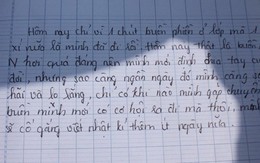 Hôm nay chỉ vì 1 chút buồn phiền ở lớp mà 1
xí nữa là mình đã đi rồi, hôm nay thật là buồn,
N hơi quá đáng nên mình mới định chia tay cuộc
đời, nhưng sao càng ngôn ngày đó mình càng sợ
hãi và lo lắng, chỉ có khi nào mình gặp chuyện
buồn mình mới có cơ hội ra đi mà thôi, mình
sẽ cố gắng viết nhật kí thêm ít ngày nữa.